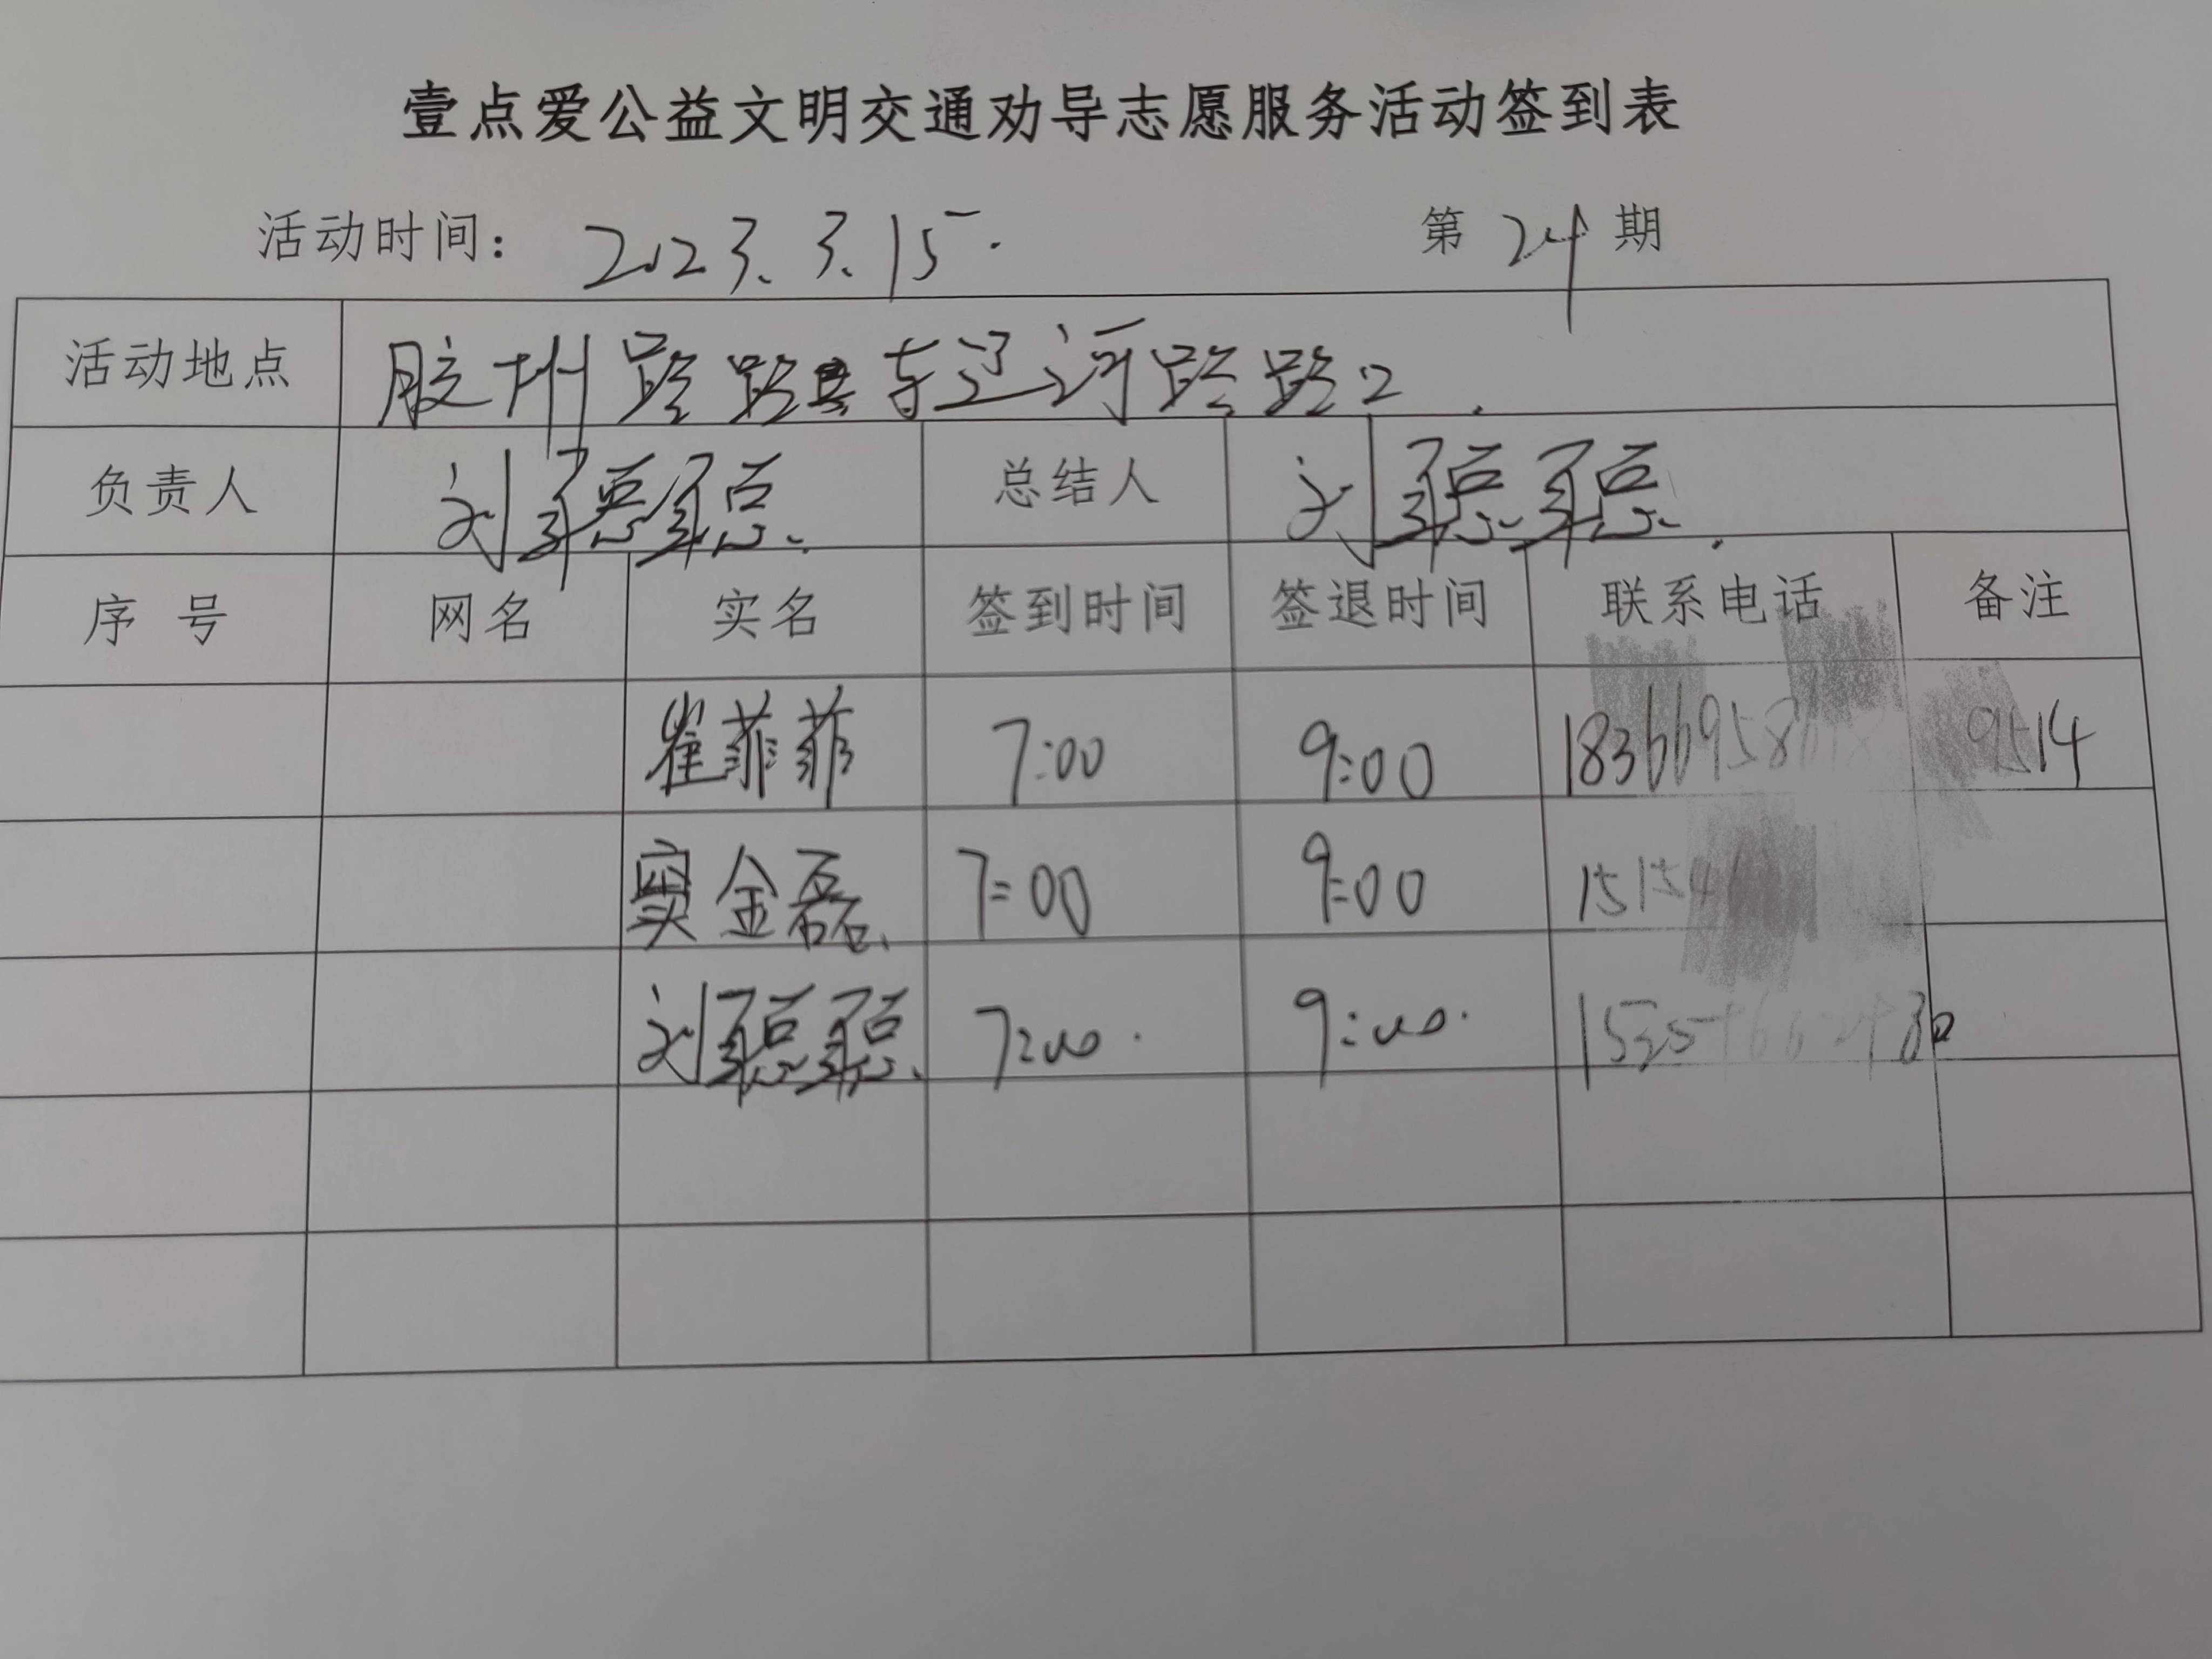 壹点爱公益文明交通劝导志愿服务活动签到表
活动时间： 2023.3.15. 第 24 期
活动地点 胶州路 东辽河路路口.
负责人 刘聪聪. 总结人 刘聪聪.
序号 网名 实名 签到时间 签退时间 联系电话 备注
崔菲菲 7:00 9:00
金磊 7:00 9:00
刘聪聪 7:00. 9:00.